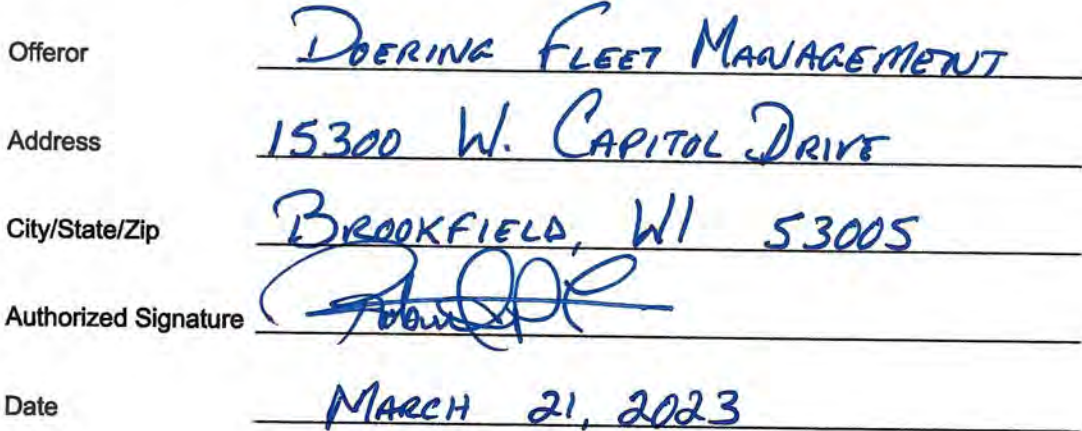 Offeror DOERING FLEET MANAGEMENT
Address 15300 W. CAPITOL DRIVE
City/State/Zip BROOKFIELD, WI 53005
Authorized Signature
Date MARCH 21, 2023